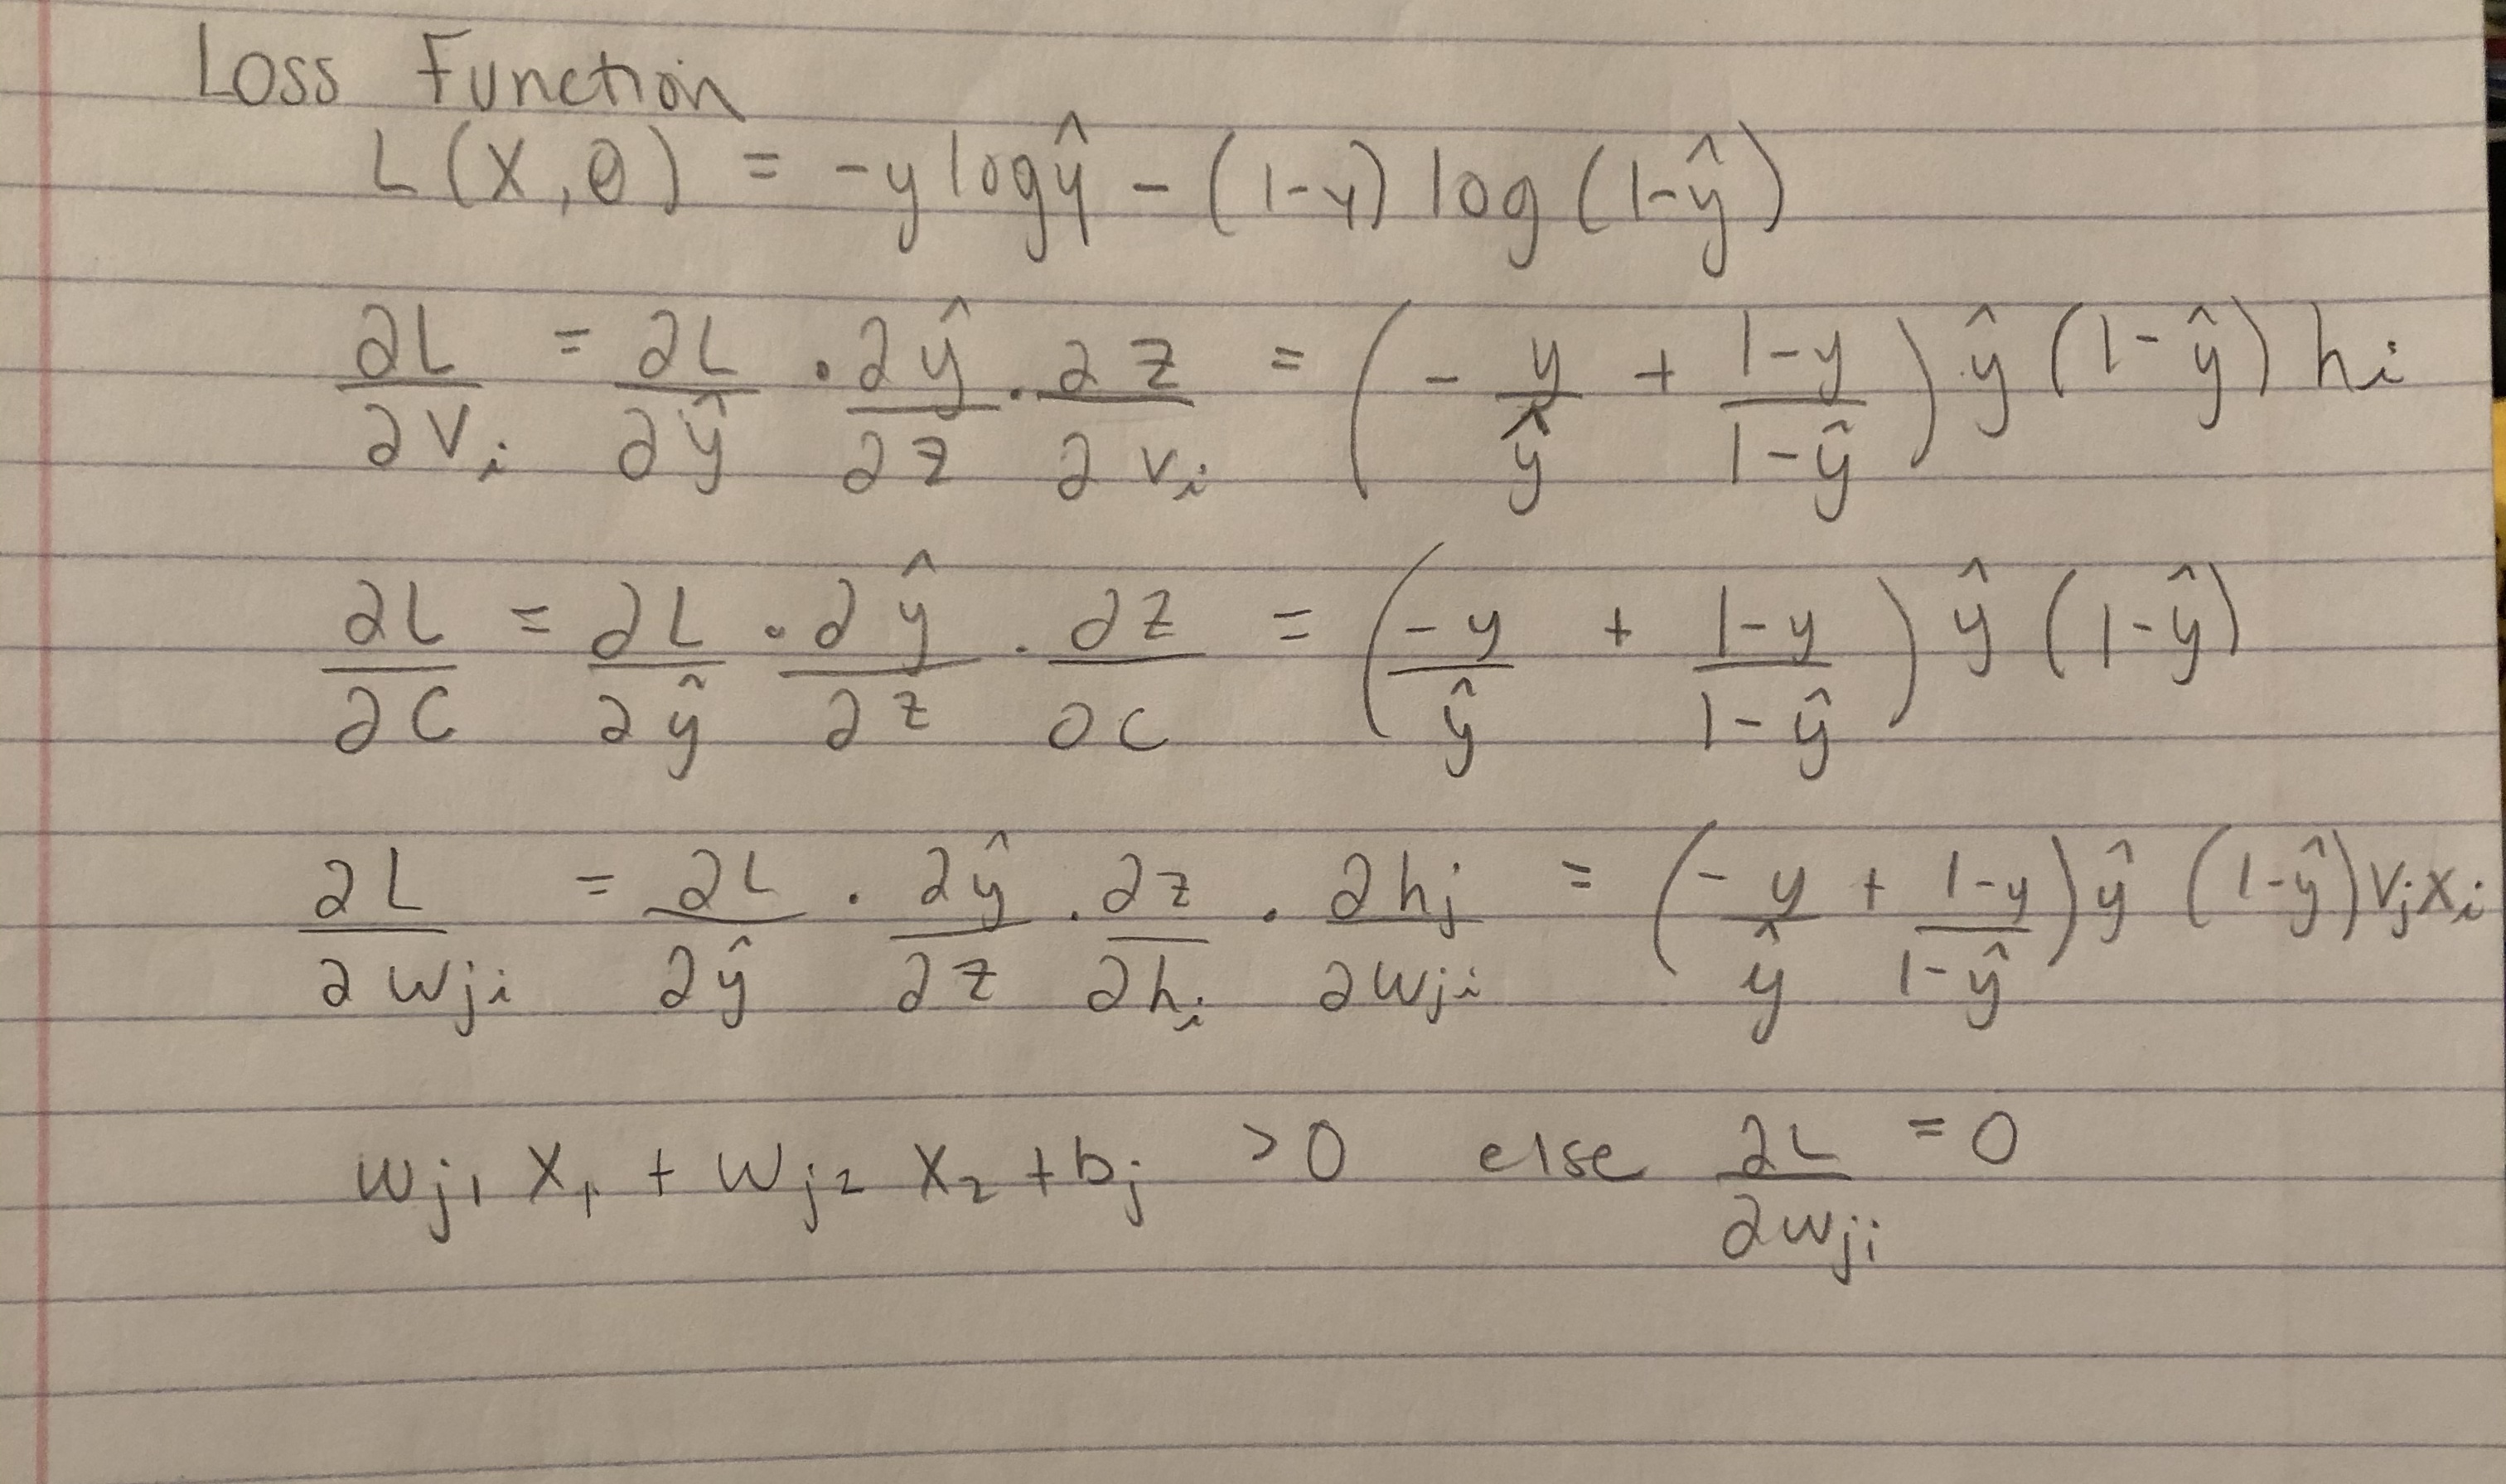 Loss Function
L(X,θ) = -y log ŷ - (1-y) log (1-ŷ)
∂L/∂Vᵢ = ∂L/∂ŷ · ∂ŷ/∂z · ∂z/∂vᵢ = (- y/ŷ + (1-y)/(1-ŷ)) ŷ (1-ŷ) hᵢ
∂L/∂C = ∂L/∂ŷ · ∂ŷ/∂z · ∂z/∂C = (-y/ŷ + (1-y)/(1-ŷ)) ŷ (1-ŷ)
∂L/∂wⱼᵢ = ∂L/∂ŷ · ∂ŷ/∂z · ∂z/∂hᵢ · ∂hⱼ/∂wⱼᵢ = (- y/ŷ + (1-y)/(1-ŷ)) ŷ (1-ŷ) vⱼ xᵢ
wⱼ₁ x₁ + wⱼ₂ x₂ + bⱼ > 0 else ∂L/∂wⱼᵢ = 0